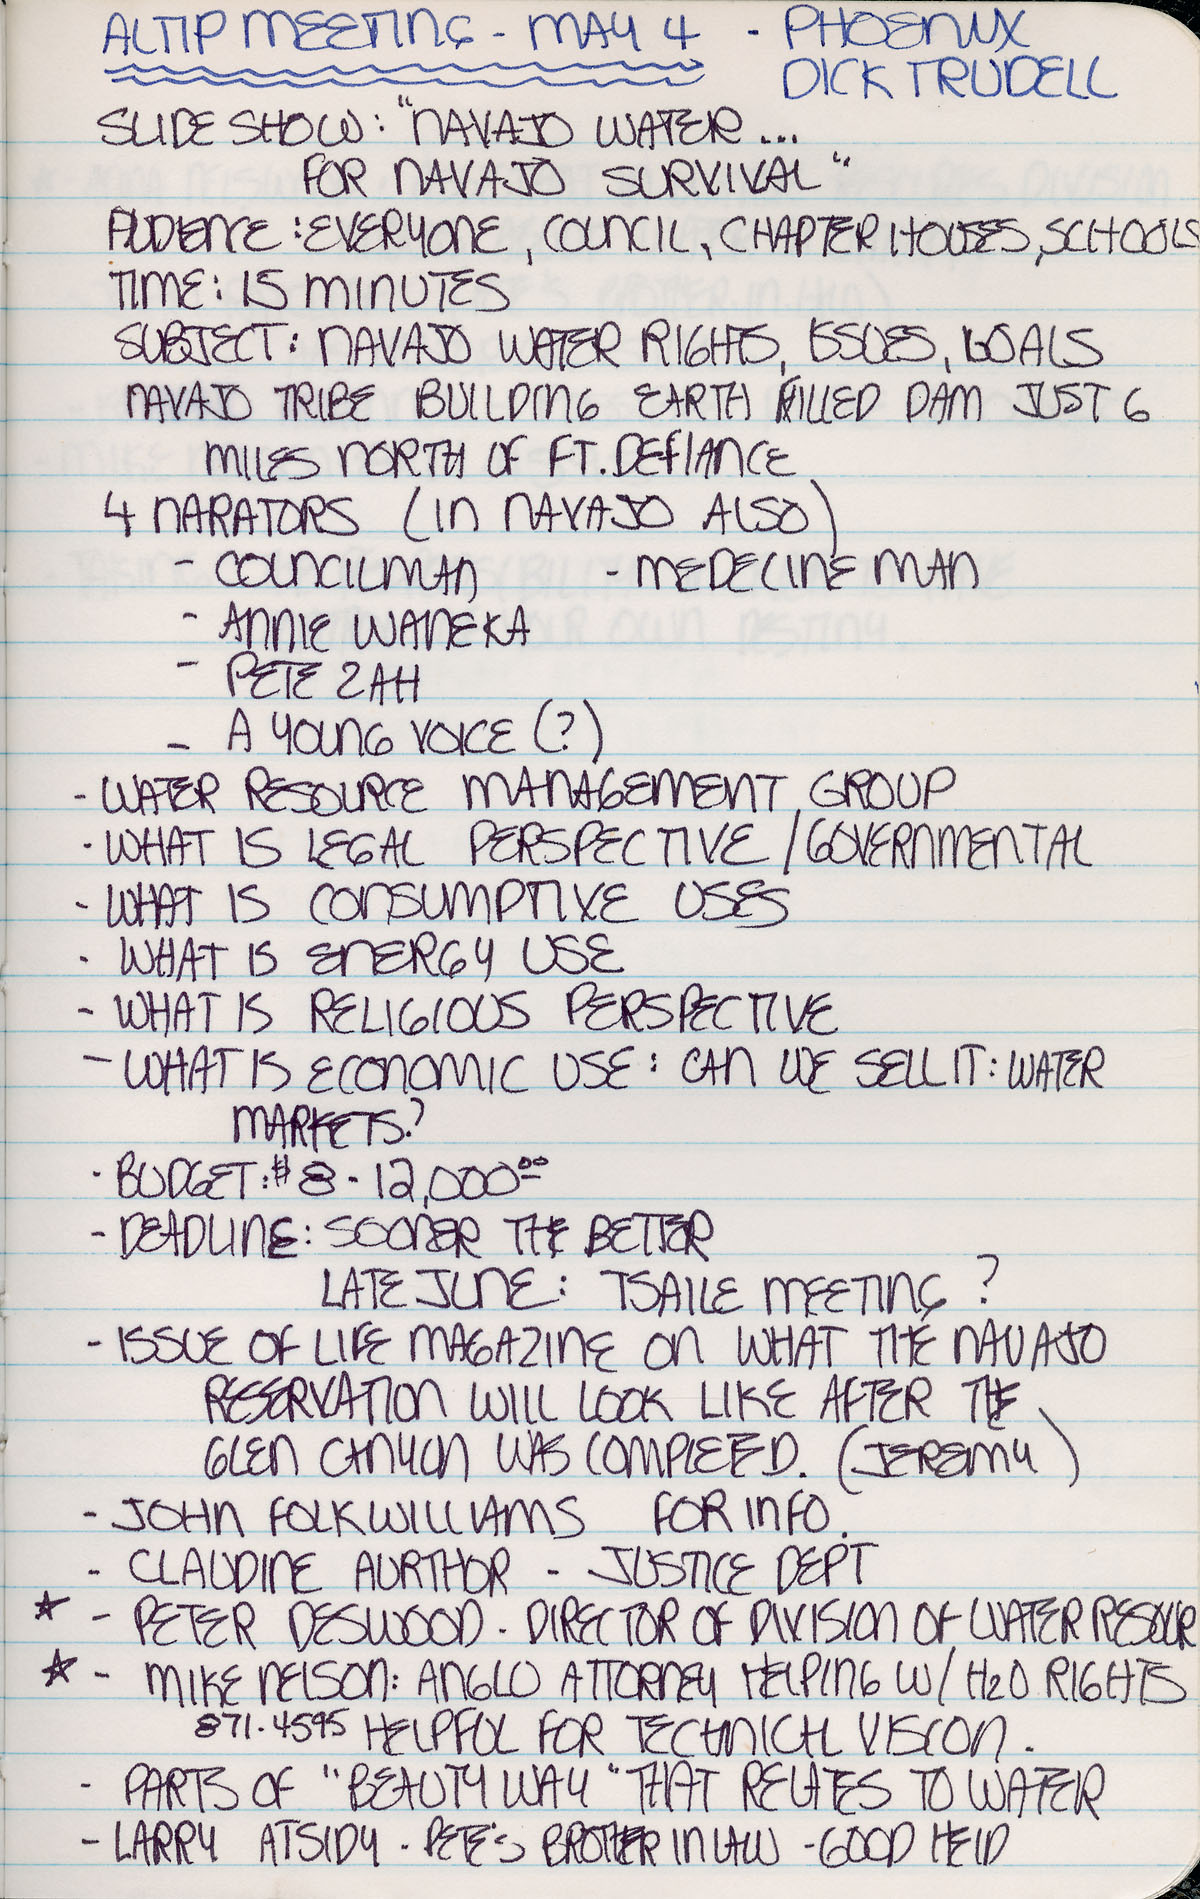 ALTIP MEETING - MAY 4 - PHOENIX
DICK TRUDELL
SLIDE SHOW: "NAVAJO WATER...
FOR NAVAJO SURVIVAL"
AUDIENCE: EVERYONE, COUNCIL, CHAPTER HOUSES, SCHOOLS
TIME: 15 MINUTES
SUBJECT: NAVAJO WATER RIGHTS, ISSUES, GOALS
NAVAJO TRIBE BUILDING EARTH FILLED DAM JUST 6
MILES NORTH OF FT. DEFIANCE
4 NARATORS (IN NAVAJO ALSO)
- COUNCILMAN - MEDECINE MAN
- ANNIE WANEKA
- PETE ZAH
- A YOUNG VOICE (?)
- WATER RESOURCE MANAGEMENT GROUP
- WHAT IS LEGAL PERSPECTIVE / GOVERNMENTAL
- WHAT IS CONSUMPTIVE USES
- WHAT IS ENERGY USE
- WHAT IS RELIGIOUS PERSPECTIVE
- WHAT IS ECONOMIC USE: CAN WE SELL IT: WATER
MARKETS?
- BUDGET: $8 - 12,000.00
- DEADLINE: SOONER THE BETTER
LATE JUNE: TSAILE MEETING?
- ISSUE OF LIFE MAGAZINE ON WHAT THE NAVAJO
RESERVATION WILL LOOK LIKE AFTER THE
GLEN CANYON WAS COMPLETED. (JEREMY)
- JOHN FOLKWILLIAMS FOR INFO.
- CLAUDINE AURTHOR - JUSTICE DEPT
★ - PETER DESWOOD - DIRECTOR OF DIVISION OF WATER RESOUR
★ - MIKE NELSON: ANGLO ATTORNEY HELPING W/ H2O RIGHTS
871-4595 HELPFUL FOR TECHNICAL VISION.
- PARTS OF "BEAUTY WAY" THAT RELATES TO WATER
- LARRY ATSIDY - PETE'S BROTHER IN LAW - GOOD